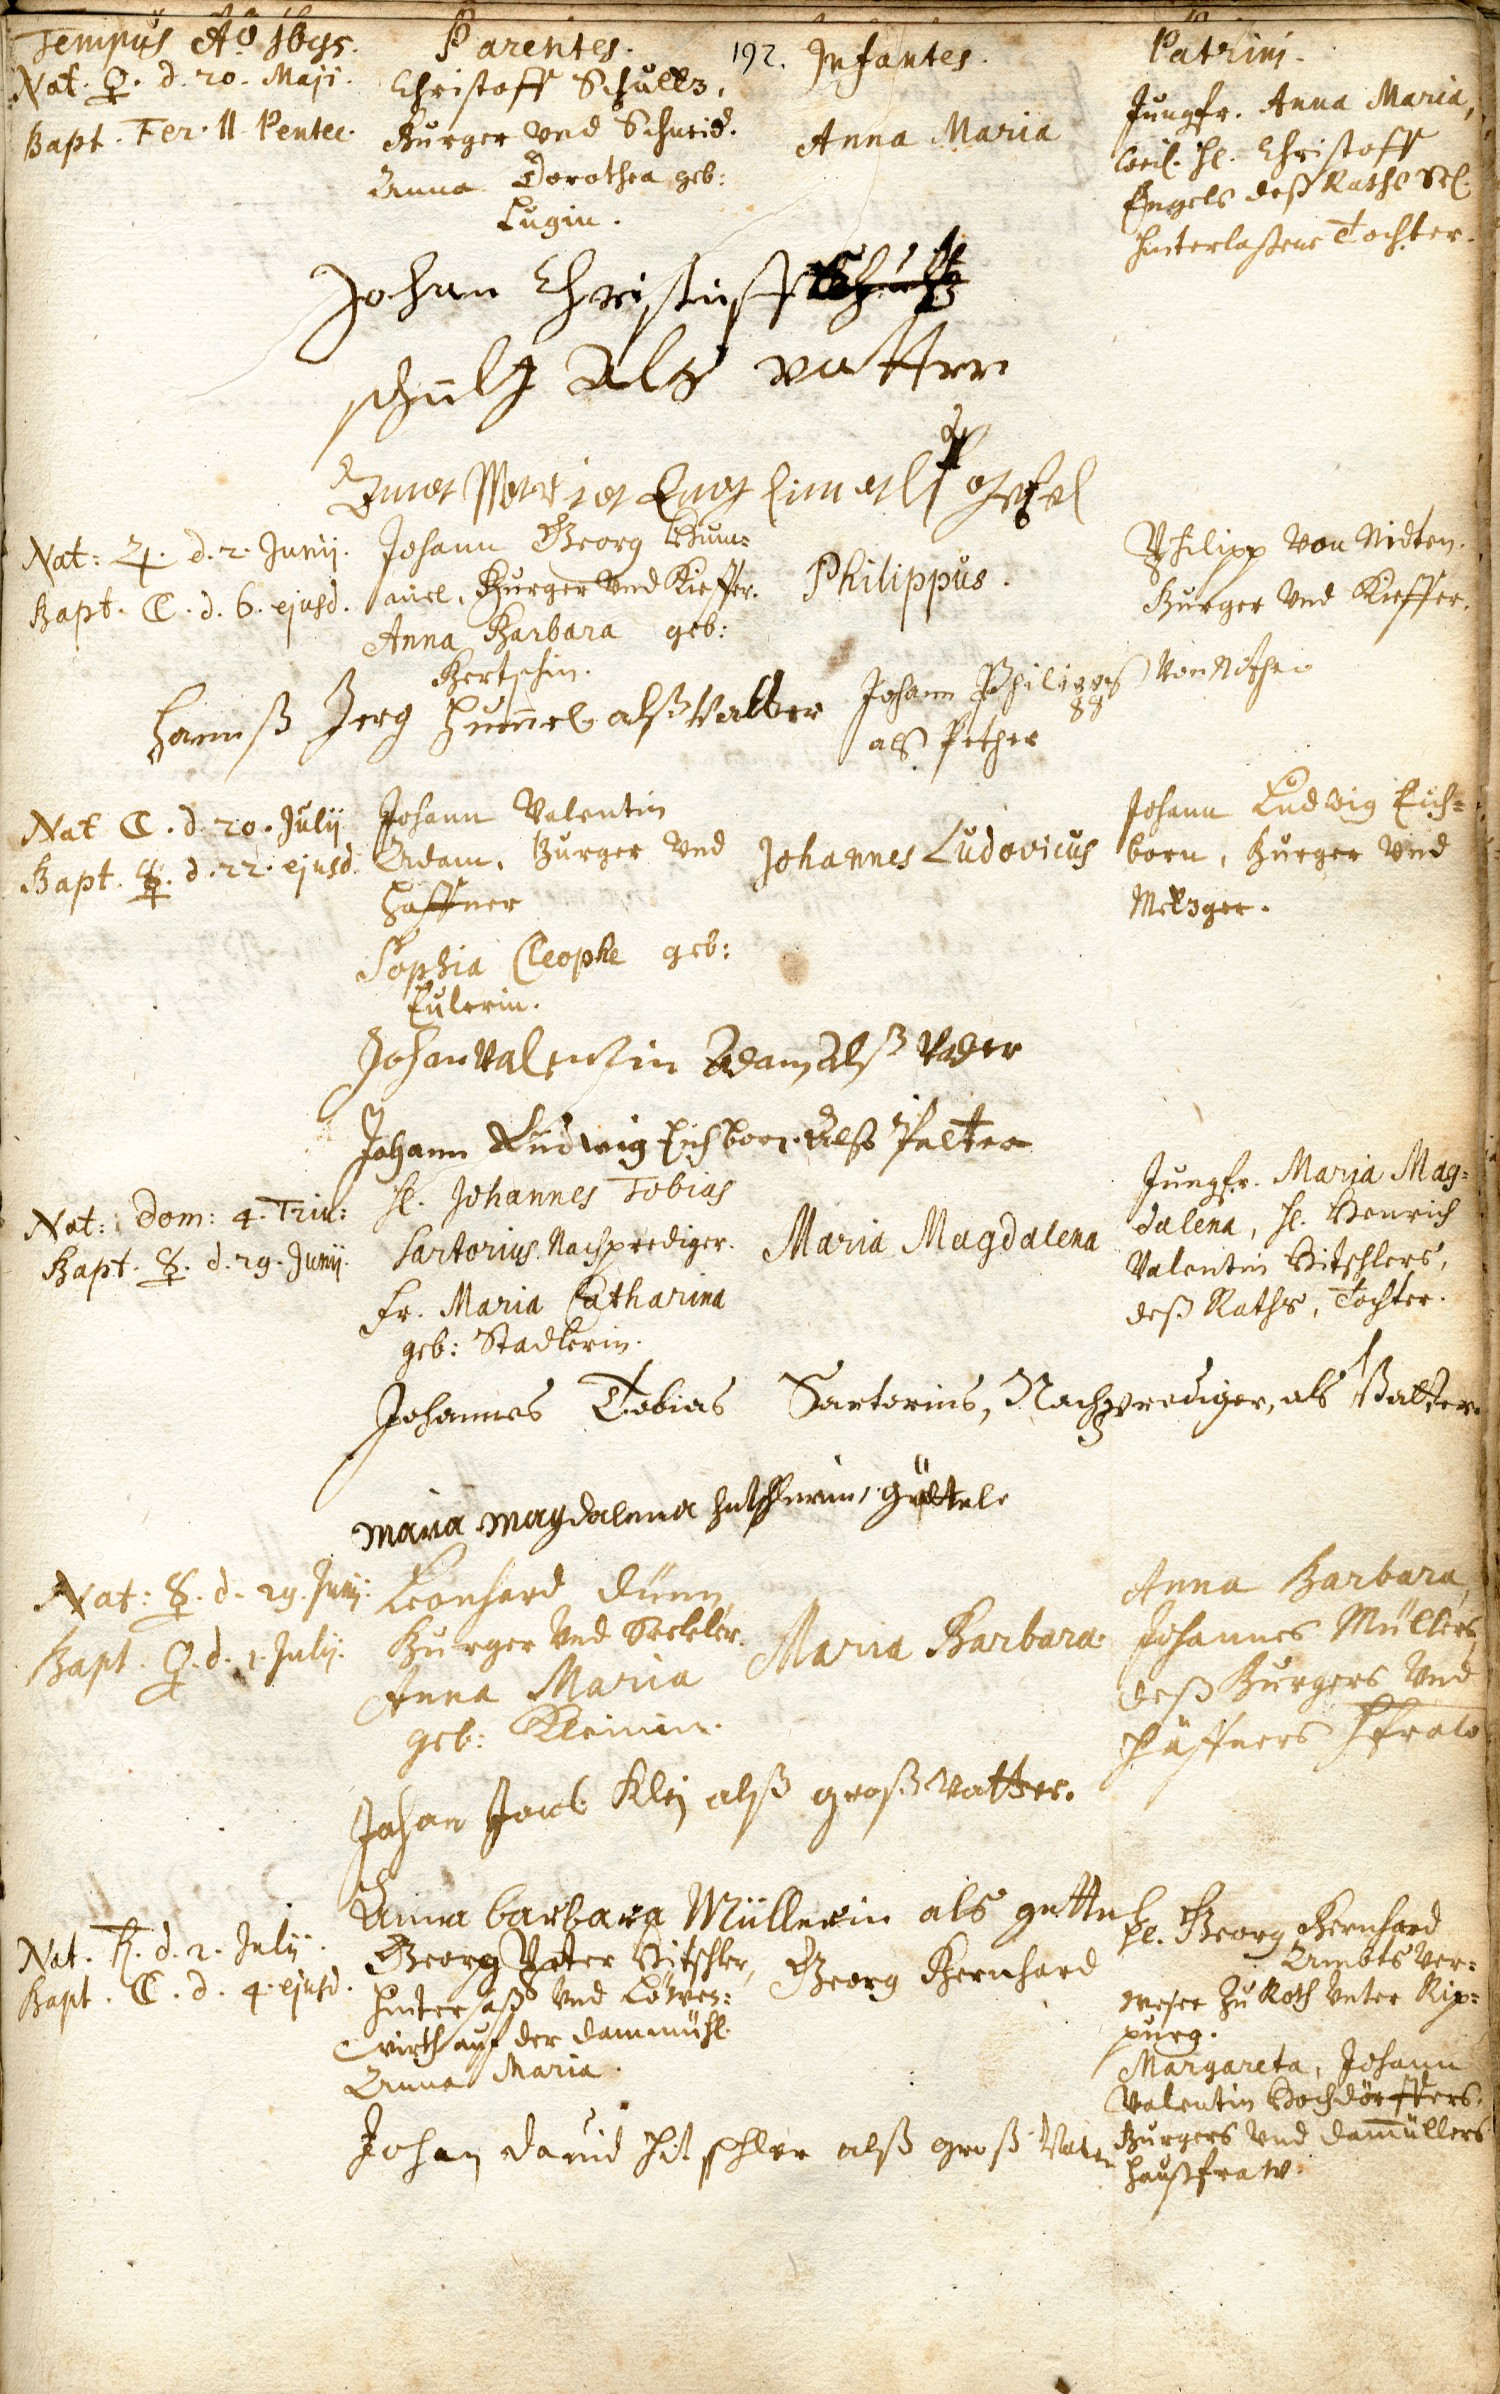 192.
Tempus Aõ 1695.
Nat. ♀. d. 20. Maji.
Bapt. Fer. II Pentec.
Parentes.
Christoff Schultz,
Burger vnd Schneid.
Anna Dorothea geb:
Lugin.
Infantes.
Anna Maria
Patrini.
Jungfr. Anna Maria,
weil. H. Christoff
Engels deß Raths Sel.
hinterlaßene Tochter.
Johan Christuff
schultz Als vatter
Nat: ♃. d. 2. Junij.
Bapt. ☾. d. 6. ejusd.
Johann Georg Hum:
mel, Burger vnd Kieffer.
Anna Barbara geb:
Bertschin.
Philippus.
Philipp von Nidten.
Burger vnd Kieffer.
Hannß Jerg Hum̄el alß Vatter
Johann Philippß von Nithen
als Pether
Nat ☾. d. 20. Julij
Bapt. ☿. d. 22. ejusd.
Johann Valentin
Adam, Burger vnd
Haffner
Sophia Cleophe geb:
Eulerin.
Johannes Ludovicus
Johann Ludwig Eich=
born, Burger vnd
Metzger.
Johan Valentin Adam Alß Vader
Johann Ludwig Eichborn Alß Petter
Nat: Dom: 4. Trin:
Bapt. ☿. d. 29. Junij.
H. Johannes Tobias
Sartorius Nachprediger.
Fr. Maria Catharina
geb: Stadlerin.
Maria Magdalena
Jungfr. Maria Mag=
dalena, H. Henrich
Valentin Hitschlers,
deß Raths, Tochter.
Johannes Tobias Sartorius, Nachprediger, als Vatter.
Maria Magdalena hitschlerin, göttele
Nat: ☿. d. 29. Junij.
Bapt. ♀. d. 1. Julij.
Leonhard Dünn,
Burger vnd Seckler.
Anna Maria
geb: Kleinin.
Maria Barbara.
Anna Barbara,
Johannes Müllers,
deß Burgers vnd
Häffners
Johan Jacob Klein alß großvatter.
Anna barbara Müllerin als gettel
Nat. ♄. d. 2. Julij.
Bapt. ☾. d. 4. ejusd.
Georg Peter Hitschler,
Hintersaß vnd Löwen:
wirth auf der Dammühl.
Anna Maria.
Georg Bernhard
H. Georg Bernhard
Ambts ver:
weser zu Roth vnter Rip=
purg.
Margareta, Johann
Valentin Hochdörffers,
Burgers vnd Dam̄müllers
Haußfraw.
Johan David Hitschler alß groß Vater